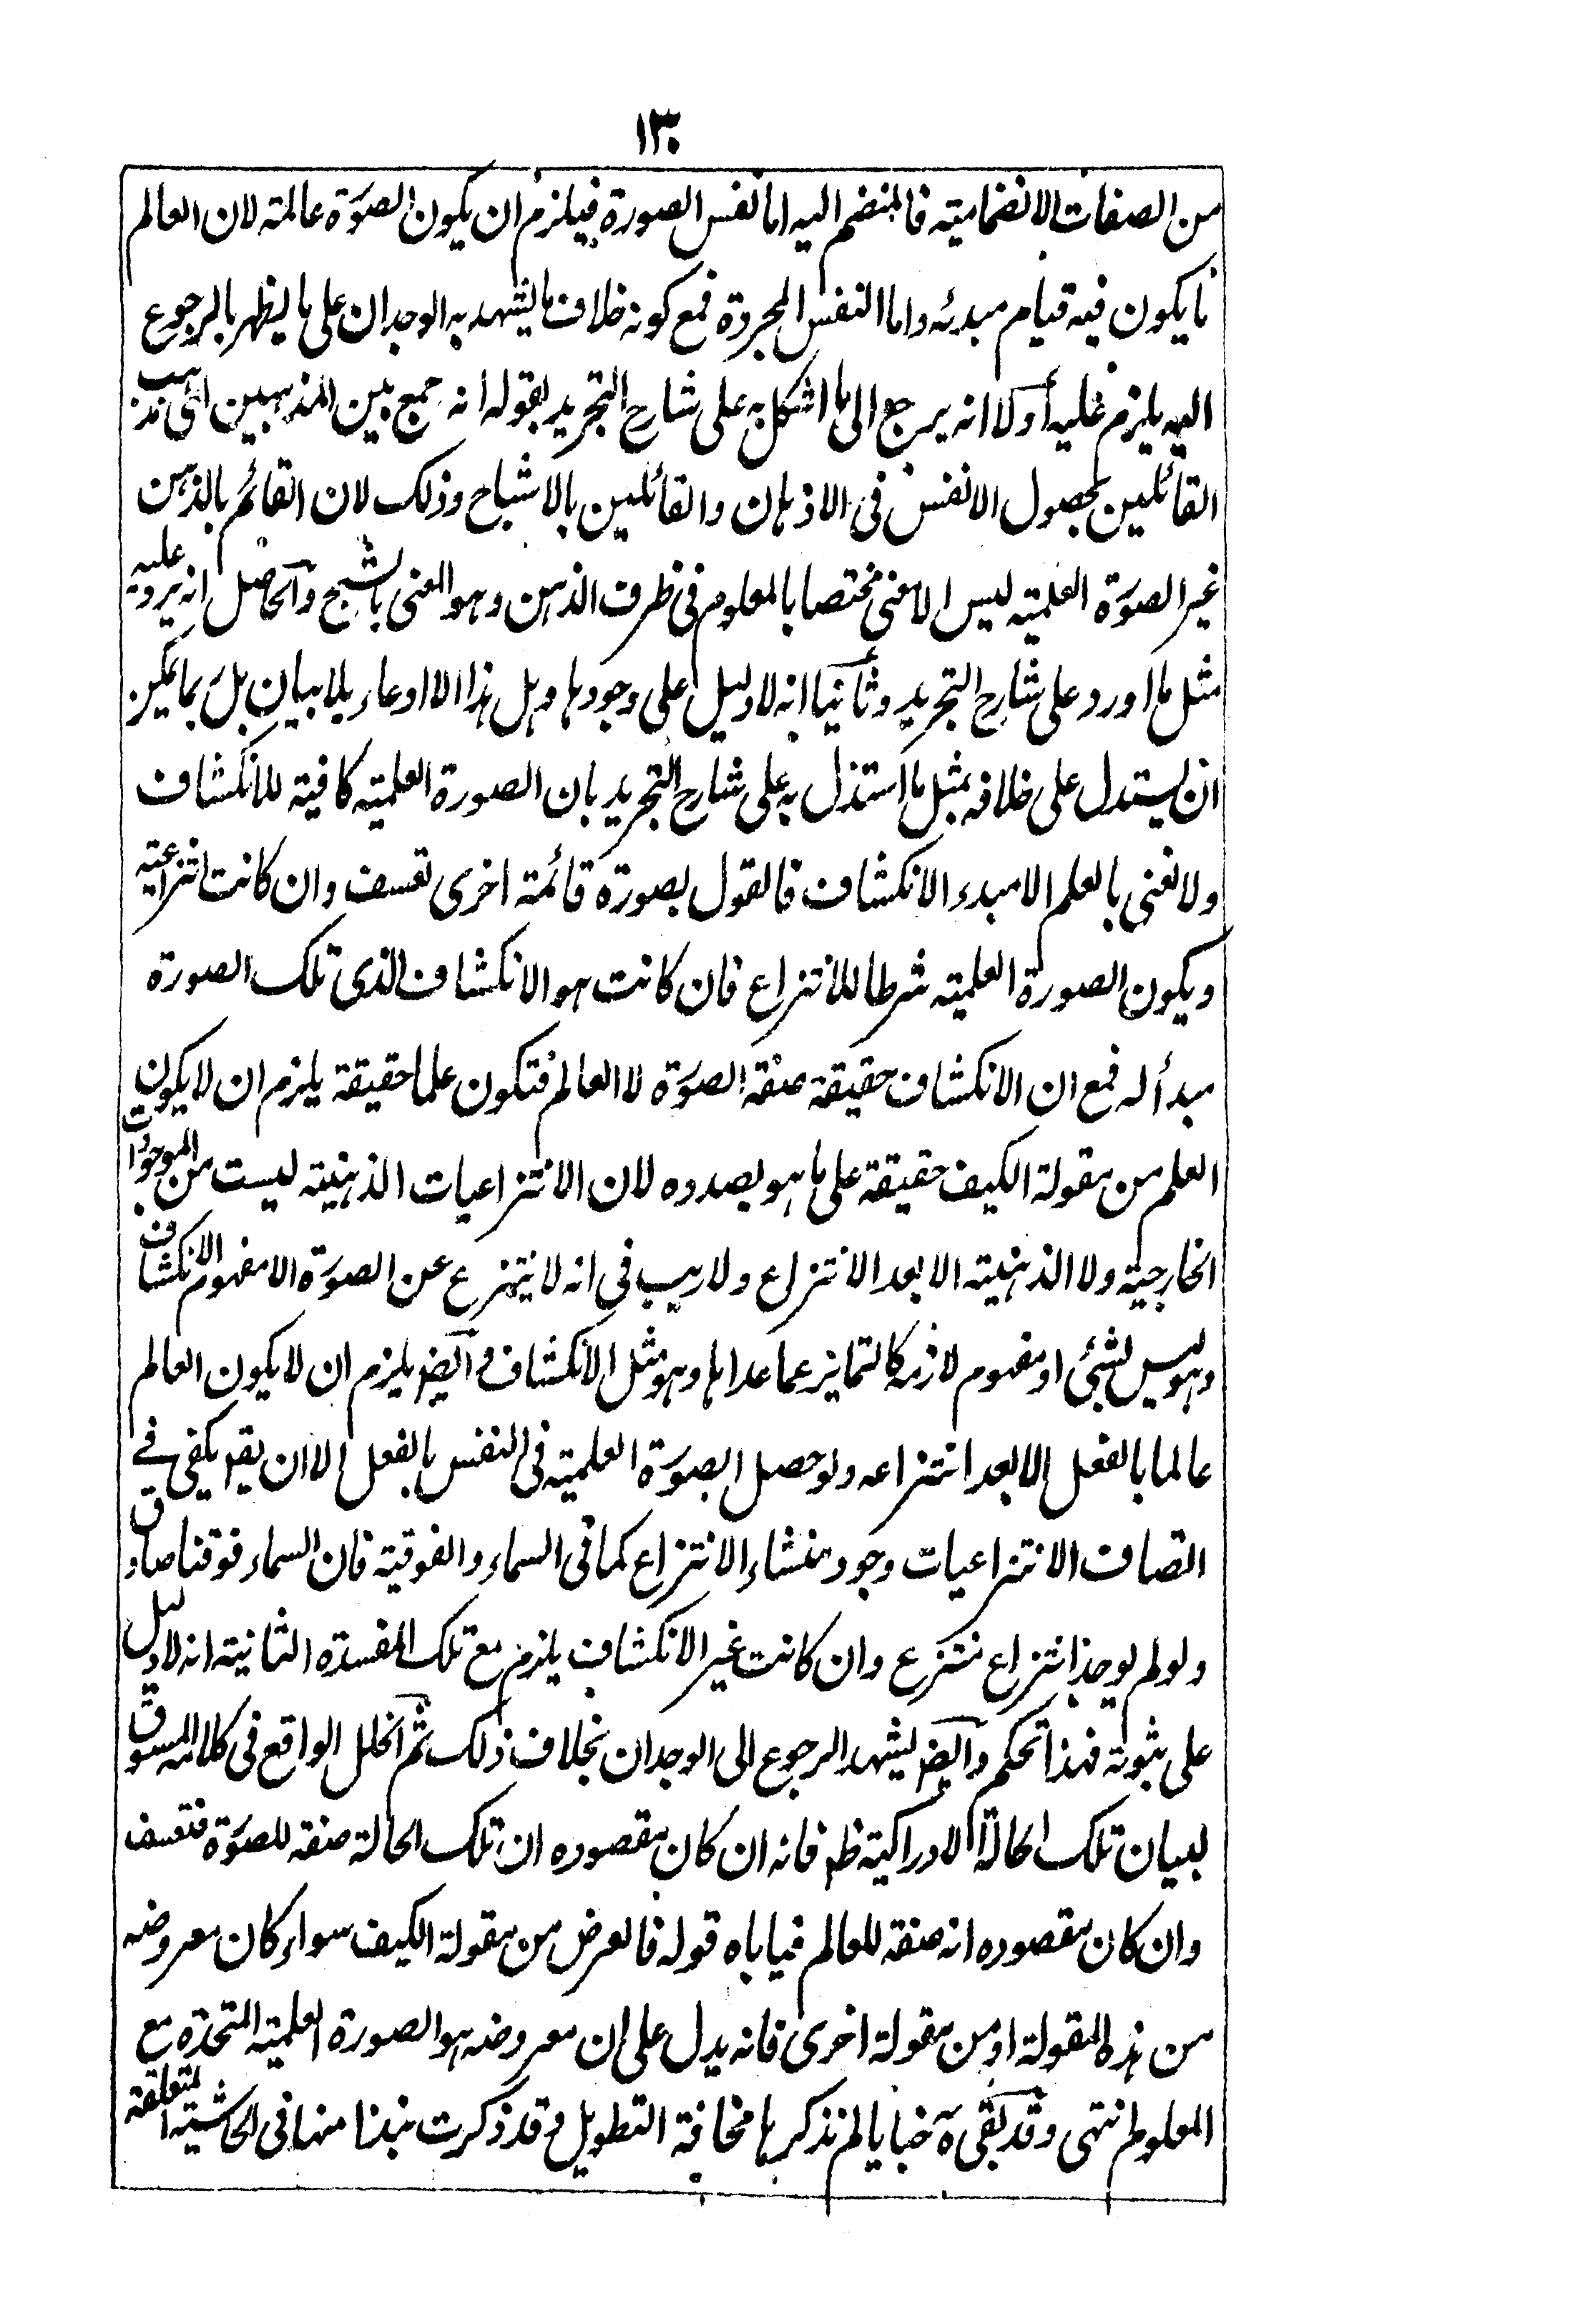 ١٣٠
من الصفات الانضمامية فالمنضم اليه اما نفس الصورة فيلزم ان يكون الصورة عالمة لان العالم
ما يكون فيه قيام مبدئه واما النفس المجردة فمع كونه خلاف ما يشهد به الوجدان على ما يظهر بالرجوع
اليه يلزم عليه أولا انه يرجع الى ما اشكل به على شارح التجريد بقوله انه جمع بين المذهبين اعنى مذهب
القائلين بحصول الانفس فى الاذهان والقائلين بالاشباح وذلك لان القائم بالذهن
غير الصورة العلمية ليس الا معنى مختصا بالمعلوم فى ظرف الذهن وهو المعنى بالشبح والحاصل انه يرد عليه
مثل ما اورد على شارح التجريد وثانيا انه لا دليل على وجودها وهل هذا الا ادعاء بلا بيان بل بما يمكن
ان يستدل على خلافه بمثل ما استدل به على شارح التجريد بان الصورة العلمية كافية للانكشاف
ولا نعنى بالعلم الا مبدء الانكشاف فالقول بصورة قائمة اخرى تعسف وان كانت انتزاعية
ويكون الصورة العلمية شرطا للانتزاع فان كانت هو الانكشاف الذى تلك الصورة
مبدأ له فمع ان الانكشاف حقيقة صفة الصورة لا العالم فتكون علما حقيقة يلزم ان لا يكون
العلم من مقولة الكيف حقيقة على ما هو بصدده لان الانتزاعيات الذهنية ليست من الموجودات
الخارجية ولا الذهنية الا بعد الانتزاع ولا ريب فى انه لا ينتزع عن الصورة الا مفهوم الانكشاف
وهو ليس بشئ او مفهوم لازمه كالتمايز عما عداها وهو مثل الانكشاف و ايضا يلزم ان لا يكون العالم
عالما بالفعل الا بعد انتزاعه ولو حصل الصورة العلمية فى النفس بالفعل الا ان يقر يكفى فى
اتصاف الانتزاعيات وجود منشاء الانتزاع كما فى السماء والفوقية فان السماء فوقنا صادق
ولو لم يوجد انتزاع منتزع وان كانت غير الانكشاف يلزم مع تلك المفسدة الثانية انه لا دليل
على ثبوته فهذا تحكم وايضا يشهد الرجوع الى الوجدان بخلاف ذلك ثم الخلل الواقع فى كلامه المسوق
لبيان تلك الحالة الادراكية ظم فانه ان كان مقصوده ان تلك الحالة صفة للصورة فتعسف
وان كان مقصوده انه صفة للعالم فياباه قوله فالعرض من مقولة الكيف سواء كان معروضه
من هذه المقولة او من مقولة اخرى فانه يدل على ان معروضه هو الصورة العلمية المتحدة مع
المعلوم انتهى وقد بقى خبايا لم نذكرها مخافة التطويل وقد ذكرت نبذا منها فى الحاشية المتعلقة